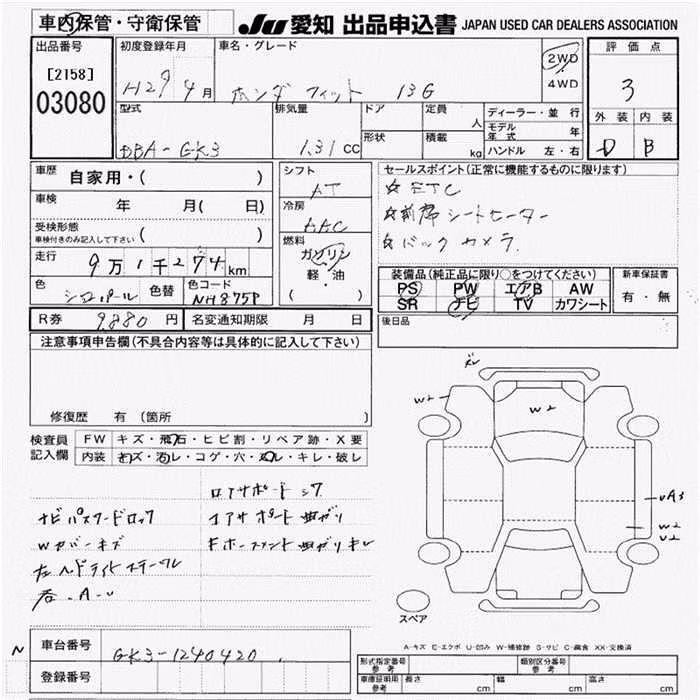 車内保管・守衛保管
JU 愛知 出品申込書 JAPAN USED CAR DEALERS ASSOCIATION
出品番号 初度登録年月 車名・グレード 2WD 4WD 評価点
[2158] 03080 H29 4月 ホンダ フィット 13G 3
型式 DBA-GK3 排気量 1.31cc ドア 形状 定員 人 積載 kg
ディーラー・並行 モデル年式 年 ハンドル 左・右
外装 内装
D B
車歴 自家用・( )
車検 年 月( 日)
受検形態 車検付きのみ記入して下さい ( )
走行 9万1千274km
色 シロパール 色替 色コード NH875P
シフト AT
冷房 AAC
燃料 ガソリン 軽・油 ( )
セールスポイント(正常に機能するものに限ります)
☆ ETC
☆ 前席シートヒーター
☆ バックカメラ
装備品(純正品に限り○をつけてください) 新車保証書
PS PW エアB AW 有・無
SR ナビ TV カワシート
後日品
R券 9,880円 名変通知期限 月 日
注意事項申告欄(不具合内容等は具体的に記入して下さい)
修復歴 有 (箇所 )
検査員記入欄 FW キズ・飛石・ヒビ割・リペア跡・X要
内装 キズ・汚レ・コゲ・穴・スレ・キレ・破レ
ナビパスワードロック
Wカバーキズ
左ヘッドライト
コアサポート
コアサポート曲がり
W2
W2
UA3
W2
U2
スペア
A-キズ E-エクボ U-凹み W-補修跡 S-サビ C-腐食 XX-交換済
N 車台番号 GK3-1240420
登録番号
形式指定番号 参考 類別区分番号 参考
車庫証明用 参考 長さ cm 幅 cm 高さ cm